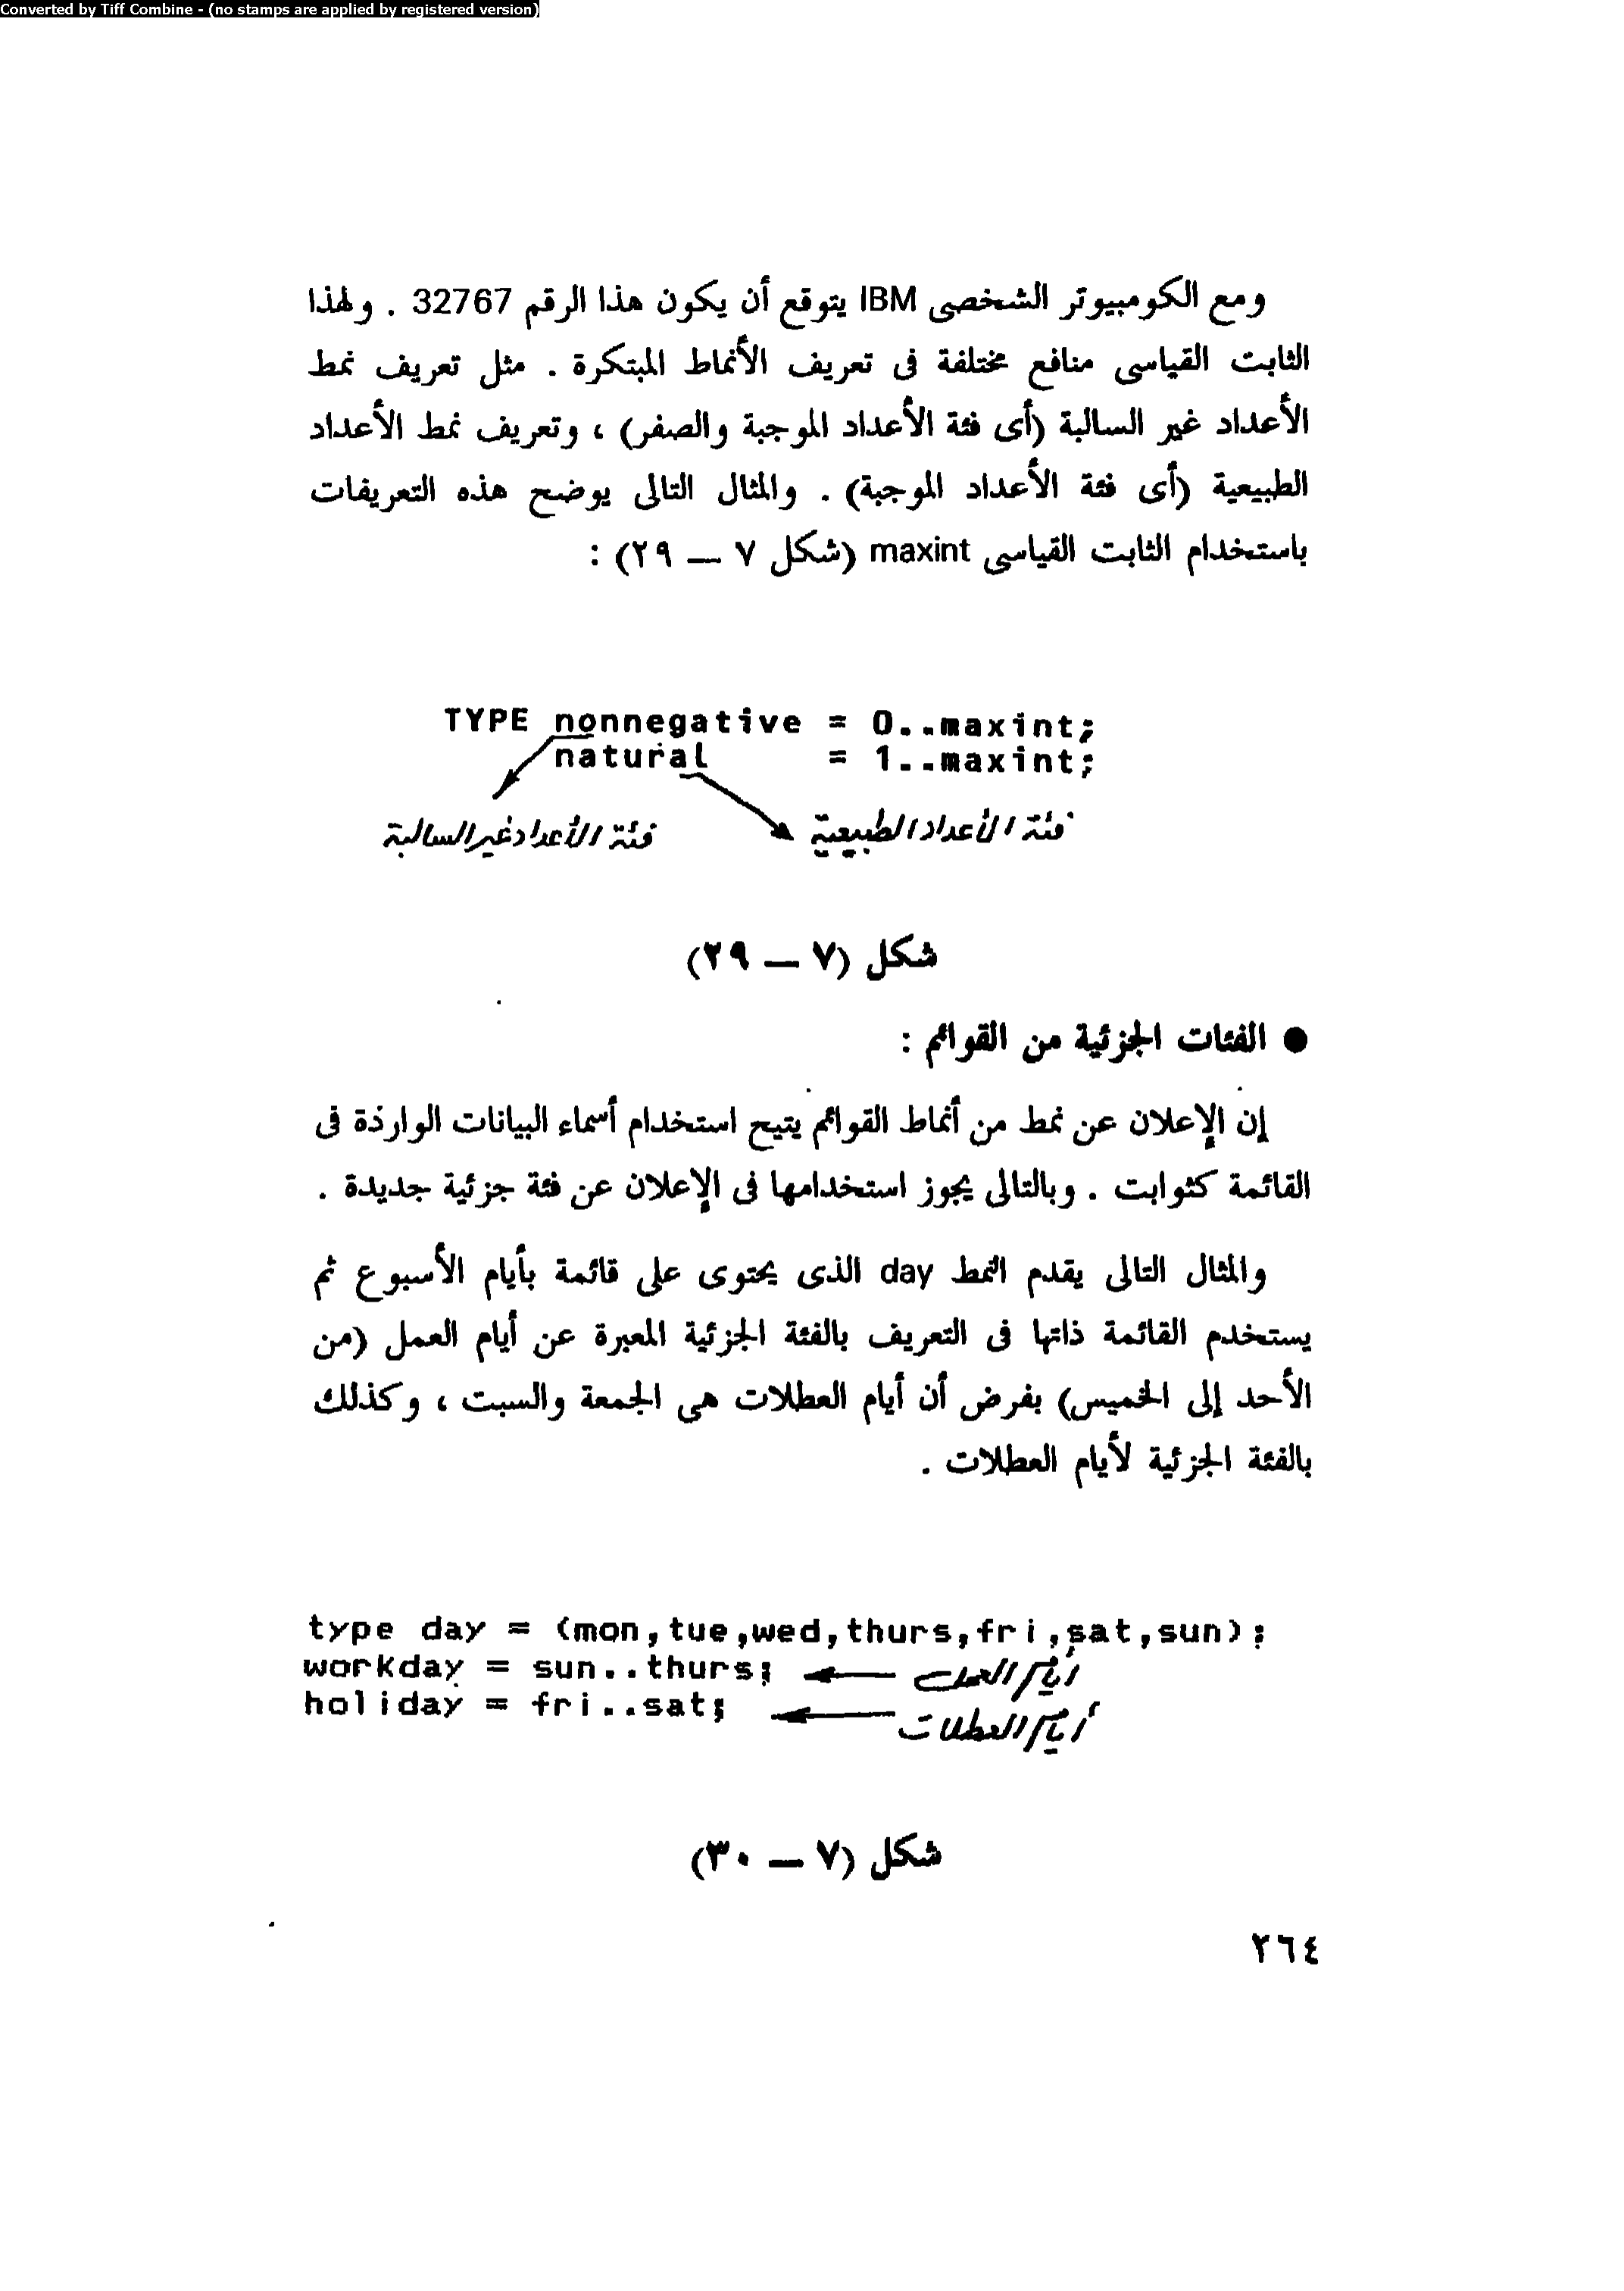 Converted by Tiff Combine - (no stamps are applied by registered version)
ومع الكومبيوتر الشخصى IBM يتوقع أن يكون هذا الرقم 32767 . ولهذا
الثابت القياسى منافع مختلفة فى تعريف الأنماط المبتكرة . مثل تعريف نمط
الأعداد غير السالبة (أى فئة الأعداد الموجبة والصفر) ، وتعريف نمط الأعداد
الطبيعية (أى فئة الأعداد الموجبة) . والمثال التالى يوضح هذه التعريفات
باستخدام الثابت القياسى maxint (شكل ٧ — ٢٩) :
TYPE nonnegative = 0..maxint;
natural = 1..maxint;
فئة الأعداد الطبيعية
فئة الأعداد غير السالبة
شكل (٧ — ٢٩)
● الفئات الجزئية من القوائم :
إن الإعلان عن نمط من أنماط القوائم يتيح استخدام أسماء البيانات الواردة فى
القائمة كثوابت . وبالتالى يجوز استخدامها فى الإعلان عن فئة جزئية جديدة .
والمثال التالى يقدم النمط day الذى يحتوى على قائمة بأيام الأسبوع ثم
يستخدم القائمة ذاتها فى التعريف بالفئة الجزئية المعبرة عن أيام العمل (من
الأحد إلى الخميس) بفرض أن أيام العطلات هى الجمعة والسبت ، وكذلك
بالفئة الجزئية لأيام العطلات .
type day = (mon,tue,wed,thurs,fri,sat,sun);
workday = sun..thurs; أيام العمل
holiday = fri..sat; أيام العطلات
شكل (٧ — ٣٠)
٢٦٤